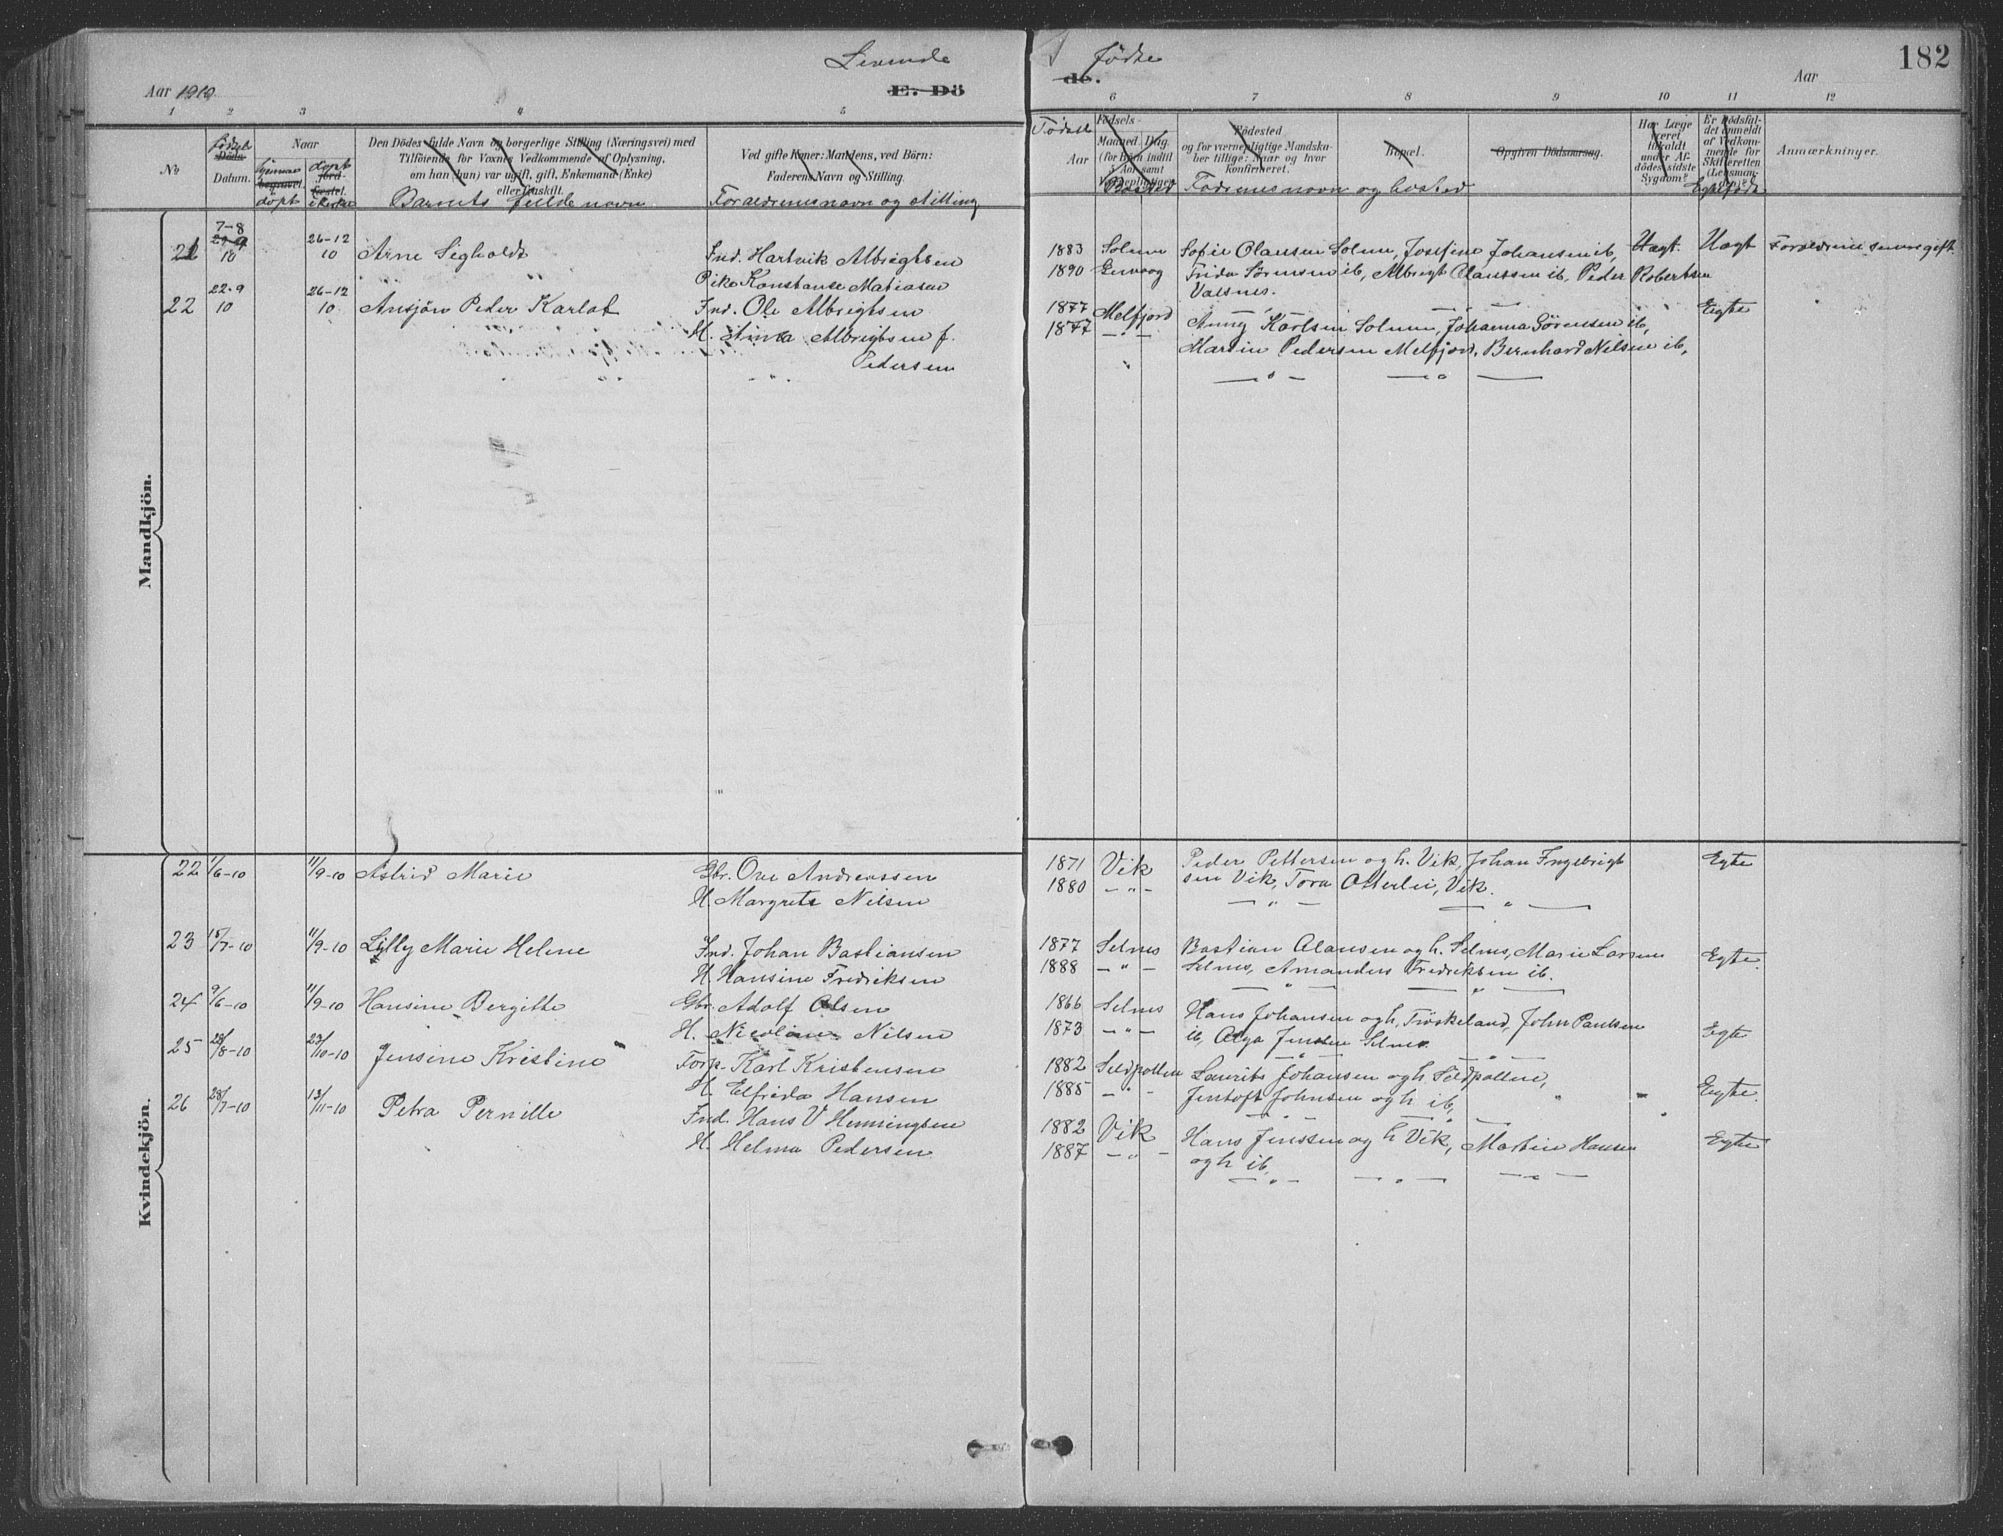 Levende
Aar 1910
E. Dö
1 2 3 4 5
No
fødsels
Döds-
Datum.
Naar
hjemme
begravet.
döpt
döpt
jord-
fæstet.
i kirke
Den Dödes fulde Navn og borgerlige Stilling (Næringsvei) med
Tilföiende for Voxnes Vedkommende af Oplysning,
om han (hun) var ugift, gift, Enkemand (Enke)
eller fraskilt.
Barnets fulde navn
Ved gifte Koner: Mandens, ved Börn:
Faderens Navn og Stilling.
Forældrenes navn og stilling
Mandkjön.
21 7-8 10 26-12 10 Arne Sigholdt Ind. Hartvik Albrigtsen
Pike Konstanse Matiasen
22 22-9 10 26-12 10 Ansjön Peder Karlot Ind. Ole Albrigtsen
H. Anna Albrigtsen f.
Pedersen
Kvindekjön.
22 1/6-10 11/9-10 Astrid Marie Gbr. Ove Andreassen
H. Margrete Nilsen
23 15/7-10 11/9-10 Lilly Marie Helene Ind. Johan Bastiansen
H. Hansine Fredriksen
24 9/6-10 11/9-10 Hansine Bergitte Gbr. Adolf Olsen
H. Nicoline Nilsen
25 28/8-10 23/10-10 Jensine Kristine Forp. Karl Kristensen
H. Elfrida Hansen
26 28/7-10 13/11-10 Petra Pernille Ind. Hans V Henningsen
H. Helma Pedersen
Fødte
de.
Aar
182
6 7 8 9 10 11 12
Födsels-
Aar
Maaned. Dag.
(for Börn indtil
2 Aar samt
Værnepligtige).
Bosted
Födested
og for værnepligtige Mandska-
ber tillige: Naar og hvor
konfirmeret.
Faderenes navn og bosted
Bopæl.
Opgiven Dödsaarsag.
Har Læge
været
tilkaldt
under Af-
dödes sidste
Sygdom?
Er Dödsfal-
det anmeldt
af Vedkom-
mende for
Skifteretten
(Lensman-
den)?
Egtefødt
Anmærkninger.
1883 Solnes Sofie Olausen Solnes, Josefine Johansen ib, Uægt. Uægt Forældrene senere gift
1890 Frida Sörensen ib, Albrigt Olaussen ib, Peder Robertsen
Valsnes.
1877 Melfjord Karlsen Solnes, Johanna Sörensen ib, Egte
1877 —"— Martin Pedersen Melfjord, Bernhard Nilsen ib,
— " — — " —
1871 Vik Peder Pettersen og h. Vik, Johan Ingebrigt Egte
1880 —"— sen Vik, Tora Otterlei, Vik.
— " — — " —
1877 Selnes Bastian Olausen og h. Selnes, Marie Larsen Egte.
1888 —"— Selnes, Amandus Fredriksen ib.
— " — — " —
1866 Selnes Hans Johansen og h, Tröskeland, John Paulsen Egte
1873 —"— ib, Olga Jenssen Selnes
— " — — " —
1882 Sildpollen Laurits Johansen og h. Sildpollen, Egte.
1885 —"— Jentoft Johnsen og h ib,
— " — — " —
1882 Vik Hans Jenssen og h Vik, Martin Hansen Egte
1887 —"— og h ib,
— " — — " — — " —